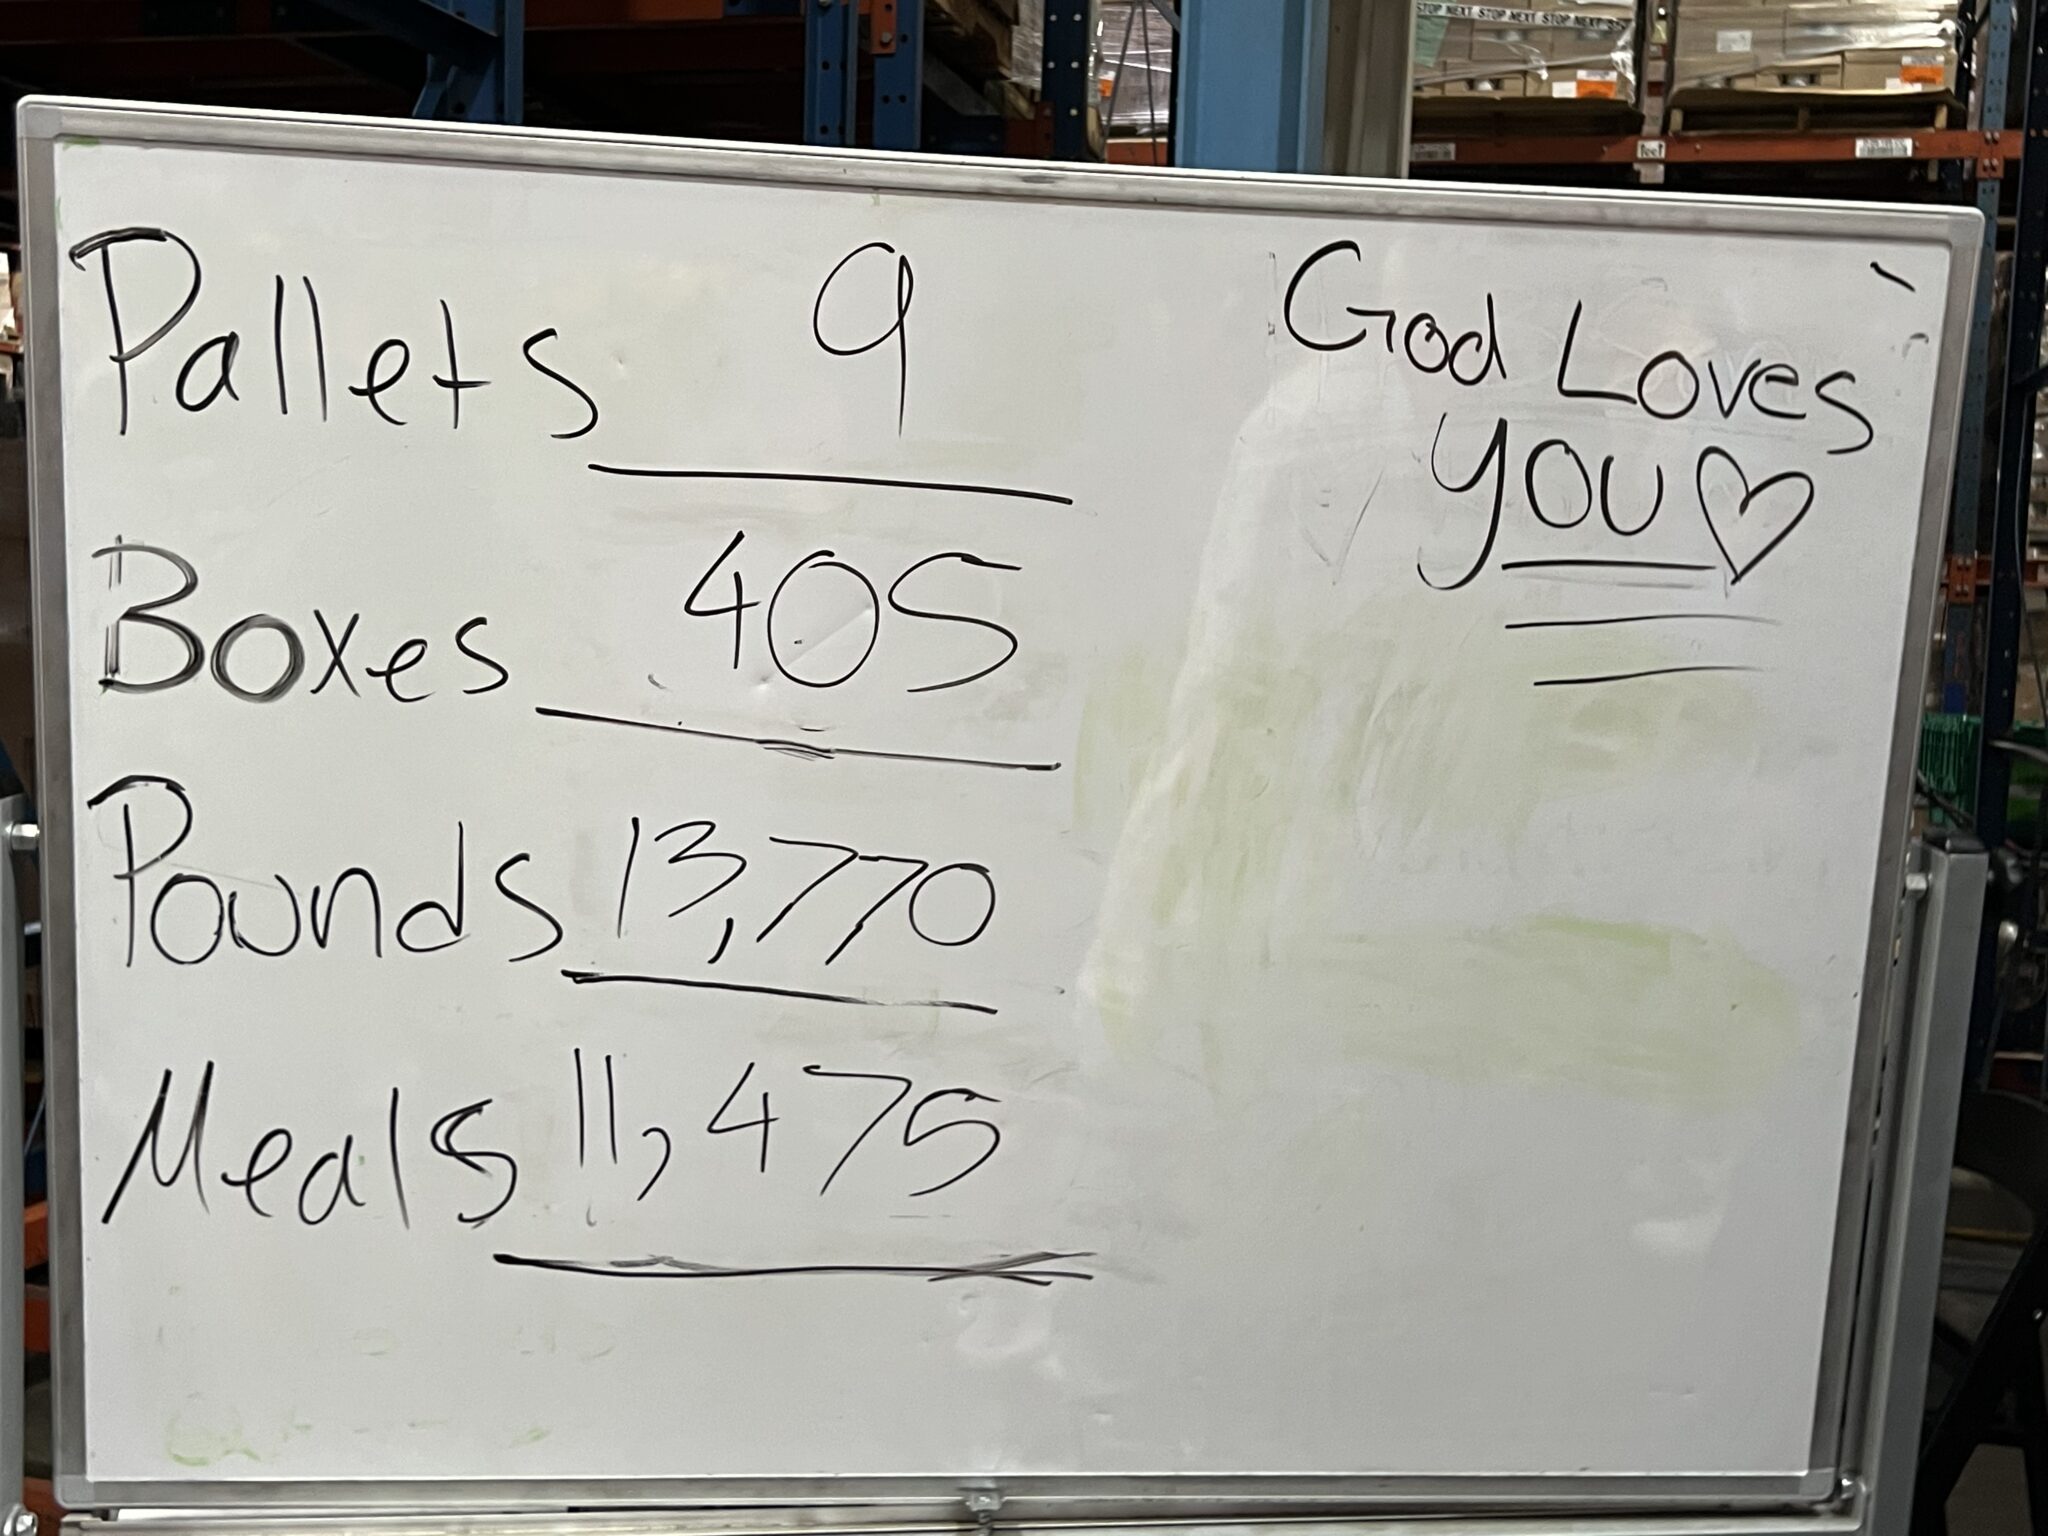 STOP NEXT STOP NEXT STOP NEXT
Pallets 9
Boxes 405
Pounds 13,770
Meals 11,475
God Loves
YOU